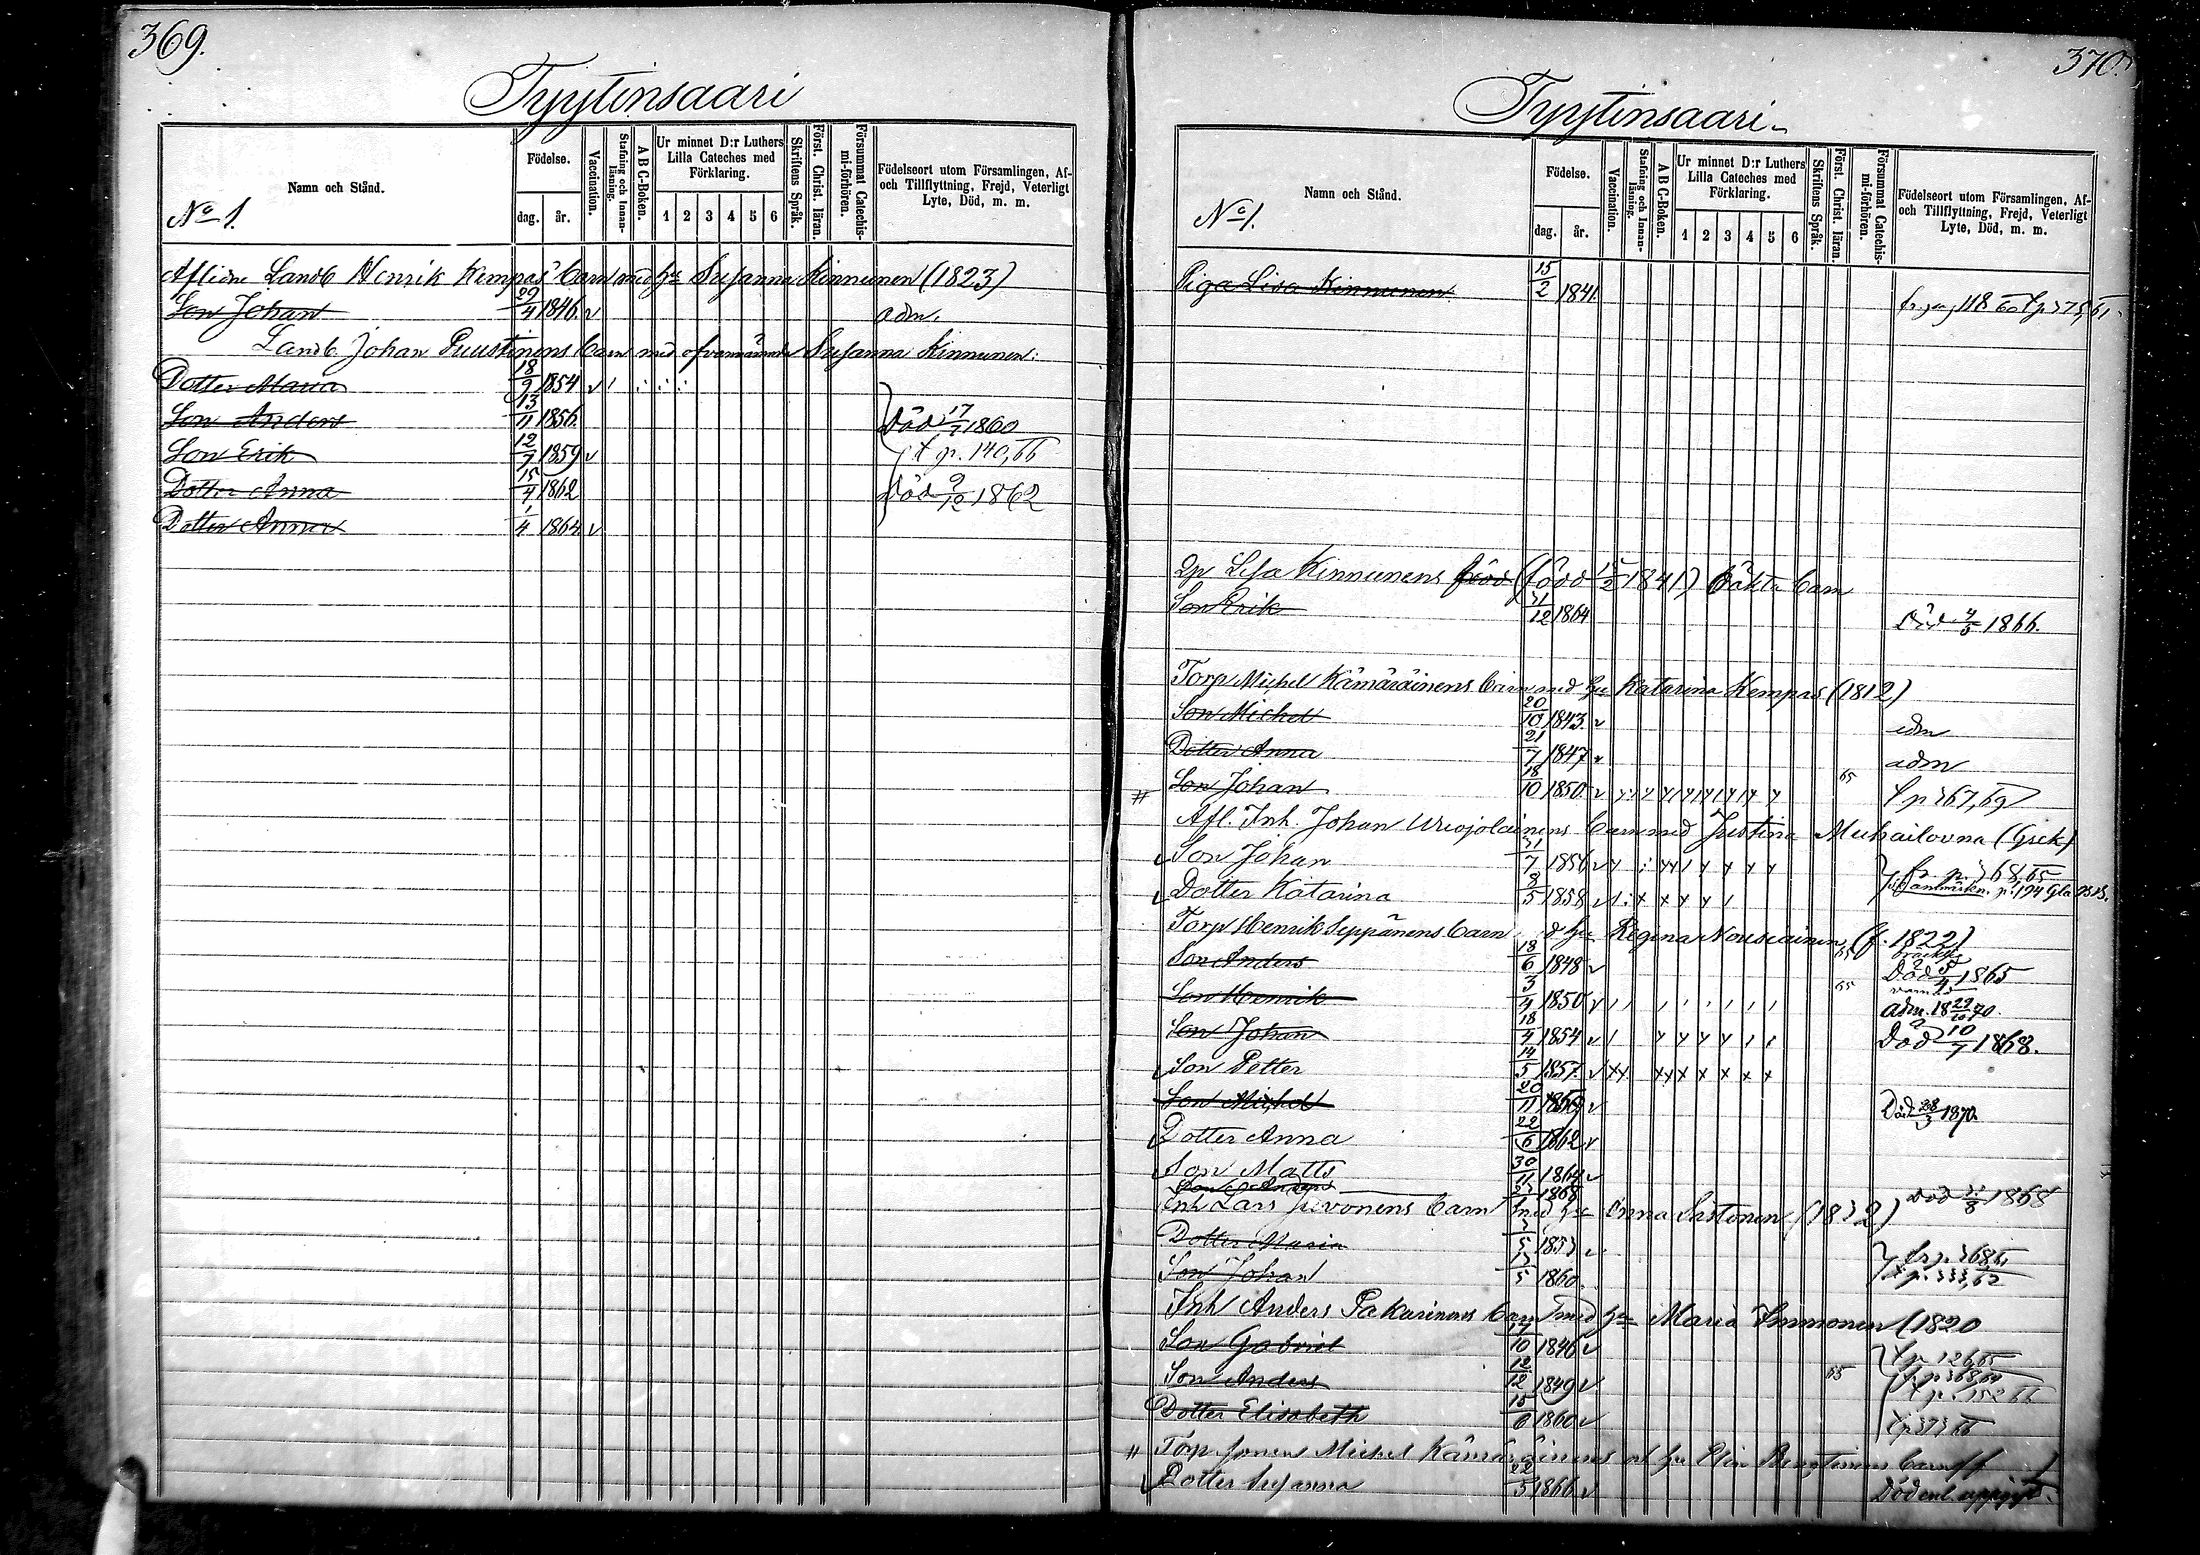 369.
Tyytinsaari
Namn och Stånd.
No 1.
Födelse.
dag. år.
Vaccination.
Stafning och Innanläsning.
A B C-Boken.
Ur minnet D:r Luthers Lilla Cateches med Förklaring.
1 2 3 4 5 6
Skriftens Språk.
Först. Christ. läran.
Försummat Catechismi-förhören.
Födelseort utom Församlingen, Af- och Tillflyttning, Frejd, Veterligt Lyte, Död, m. m.
Aflidne Landb Henrik Kempas' barn med hu Susanna Kinnunen (1823)
Son Johan 29/4 1846. v adm.
Landb. Johan Puustinens barn med ofvannämnde Susanna Kinnunen:
Dotter Maria 18/9 1854 v
Son Anders 13/11 1856. Död 17/7 1860
Son Erik 12/7 1859 v p. 140, 66
Dotter Anna 15/4 1862 Död 9/12 1862
Dotter Anna 1/4 1864 v
370.
Tyytinsaari
Namn och Stånd.
No 1.
Födelse.
dag. år.
Vaccination.
Stafning och Innanläsning.
A B C-Boken.
Ur minnet D:r Luthers Lilla Cateches med Förklaring.
1 2 3 4 5 6
Skriftens Språk.
Först. Christ. läran.
Försummat Catechismi-förhören.
Födelseort utom Församlingen, Af- och Tillflyttning, Frejd, Veterligt Lyte, Död, m. m.
Piga Lisa Kinnunen 15/2 1841. fr. pag 118 60
Qp Lisa Kinnunens född (född 15/2 1841) Oäkta barn
Son Erik 31/12 1864 Död 4/5 1866.
Torp Michel Kämäräinens barn med hu Katarina Kempas (1812)
Son Michel 20/10 1843. v adm
Dotter Anna 21/7 1847 v adm
Son Johan 18/10 1850 v 65 p 367, 69
Afl. Inh. Johan Uriojolainens barn med Justina Michailovna (Grek)
Son Johan 31/7 1856 v fr. p. 368, 65
Dotter Katarina 8/5 1858 v anmärkn. p. 194
Torp Henrik Seppänens barn d hu Regina Nousiainen (f. 1822)
Son Anders 18/6 1848 v 65 Död 5/4 1865
Son Henrik 3/4 1850 v 65 adm. 18 29/10 70.
Son Johan 18/4 1854 v Död 10/7 1868.
Son Petter 14/5 1857. v
Son Michel 20/11 1859 v Död 28/3 1870
Dotter Anna 22/6 1862 v
Son Matts 30/11 1864 v
Son Anders 1868 Död 8 1868
Inh Lars Juvonens barn med hu Anna Sistonen (1832)
Dotter Maria 5 1853 v fr p. 368,
Son Johan 5 1860. p. 333, 62
Inh Anders Pakarinens barn med hu Maria Immonen (1820
Son Gabriel 27/10 1846 v p 126, 65
Son Anders 12/12 1849 v 65 p. 368, 64 p. 152 66
Dotter Elisabeth 15/6 1860 v p 373 66
Torp sonens Michel Kämäräinens o hu barn
Dotter Susanna 22/3 1866 v Död enl. uppgift.